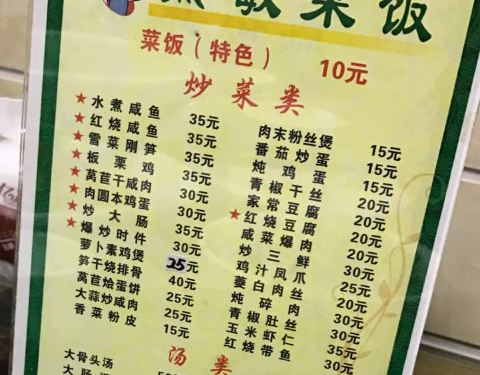 菜饭
菜饭（特色） 10元
炒菜类
★水煮咸鱼 35元
★红烧咸鱼 35元
★雪菜刚笋 35元
★板栗鸡 35元
莴苣干咸肉 30元
★肉圆本鸡 30元
炒大肠 35元
★爆炒时件 30元
萝卜素鸡煲 25元
笋干烧排骨 40元
莴苣烩蛋饼 25元
大蒜炒咸肉 25元
香菜粉皮 15元
肉末粉丝煲 15元
番茄炒蛋 15元
炖鸡蛋 20元
青椒干丝 20元
家常豆腐 20元
★红烧豆腐
咸菜爆肉 30元
炒三鲜 25元
鸡汁凤爪
菱白肉丝 20元
炖碎肉
青椒肚丝 30元
玉米虾仁 35元
红烧带鱼 30元
汤类
大骨头汤
大肠汤